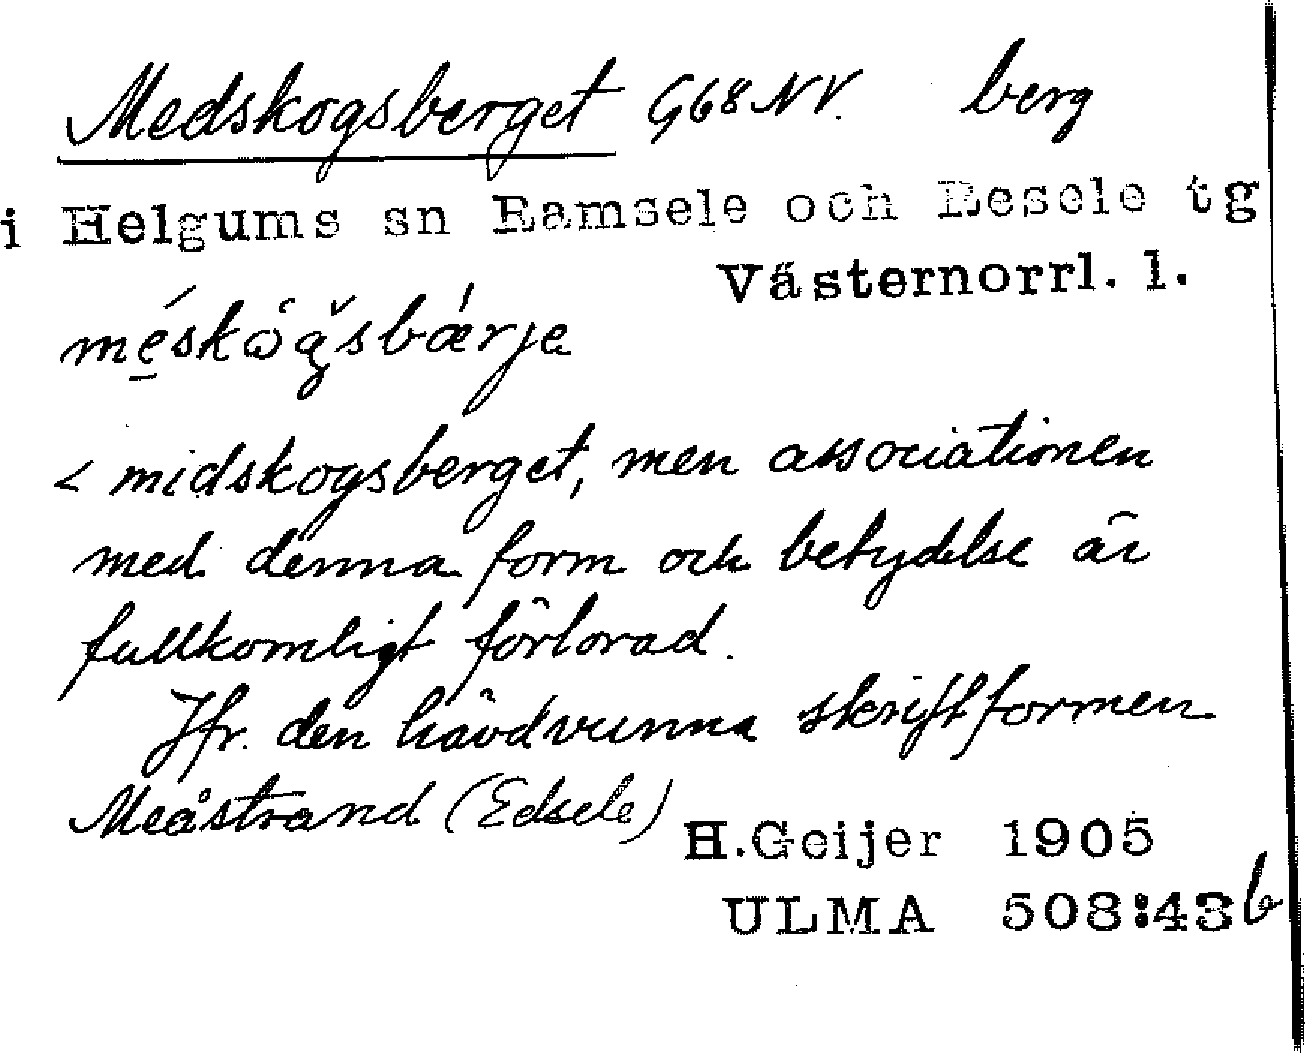 Medskogsberget G68NV. berg
i Helgums sn Ramsele och Resele tg
Västernorrl. l.
méskö̀gsbǽrje
< midskogsberget, men associationen
med denna form och betydelse är
fullkomligt förlorad.
Jfr. den hävdvunna skriftformen
Meåstrand (Edsele)
H.Geijer 1905
ULMA 508:43b